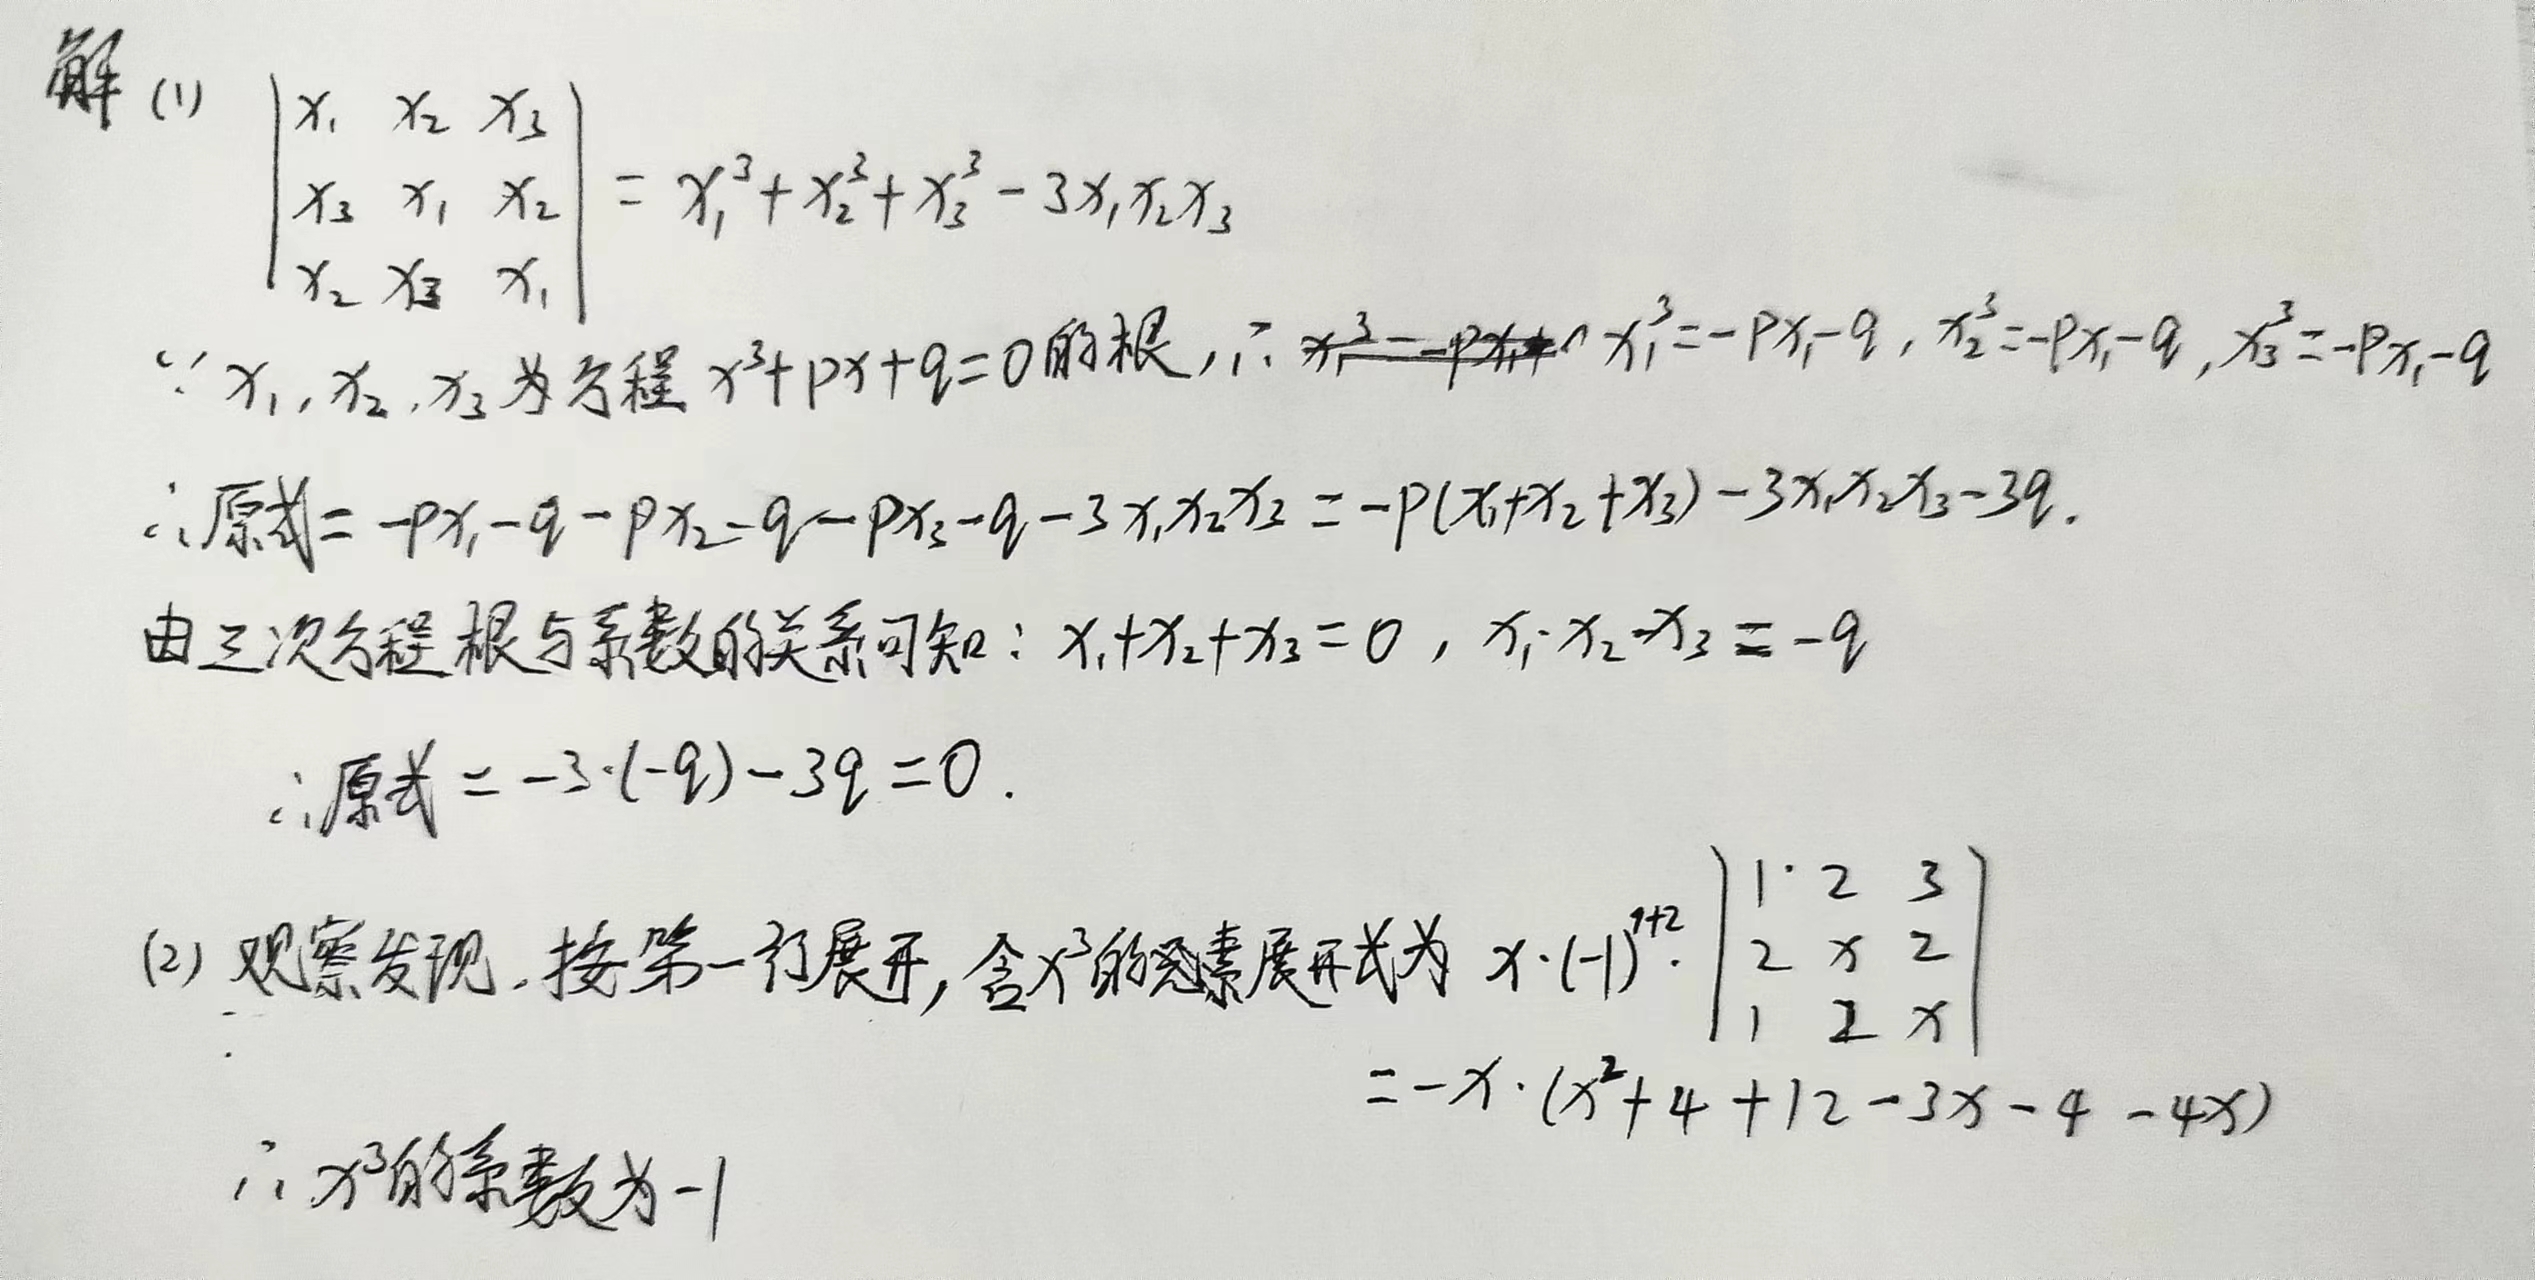 解 (1) | x₁ x₂ x₃ |
| x₃ x₁ x₂ | = x₁³+x₂³+x₃³-3x₁x₂x₃
| x₂ x₃ x₁ |
∵ x₁, x₂, x₃为方程 x³+px+q=0的根, ∴ x₁³=-px₁-q, x₂³=-px₁-q, x₃³=-px₁-q
∴原式= -px₁-q-px₂-q-px₃-q-3x₁x₂x₃ = -p(x₁+x₂+x₃)-3x₁x₂x₃-3q.
由三次方程根与系数的关系可知: x₁+x₂+x₃=0, x₁·x₂·x₃=-q
∴原式 = -3·(-q)-3q=0.
(2) 观察发现,按第一行展开,含x³的元素展开式为 x·(-1)¹⁺²· | 1 2 3 |
| 2 x 2 |
| 1 2 x |
= -x·(x²+4+12-3x-4-4x)
∴ x³的系数为-1